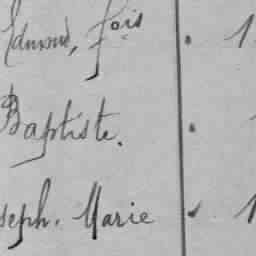 Edmond, fois . 1
Baptiste. .
seph. Marie . 1